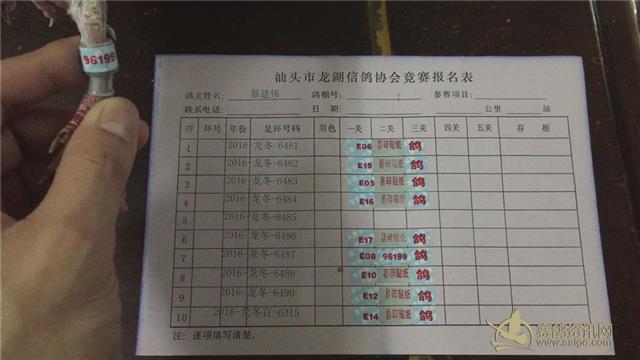 96199
汕头市龙湖信鸽协会竞赛报名表
鸽主姓名: 蔡建伟 鸽棚号: 7 参赛项目:
联系电话: 日期: 公里 站
序 环号 年份 足环号码 羽色 一关 二关 三关 四关 五关 存 根
1 2016-龙冬-6481 E06 易碎贴纸 鸽
2 2016-龙冬-6482 E15 易碎贴纸 鸽
3 2016-龙冬-6483 E05 易碎贴纸 鸽
4 2016-龙冬-6484 E16 易碎贴纸 鸽
5 2016-龙冬-6485
6 2016-龙冬-6486 E17 易碎贴纸 鸽
7 2016-龙冬-6487 E08 96199 鸽
8 2016-龙冬-6489 E10 易碎贴纸 鸽
9 2016-龙冬-6490 E12 易碎贴纸 鸽
10 2016-龙冬百-6315 E14 易碎贴纸 鸽
注: 逐项填写清楚。
赛鸽资讯网
www.saige.com